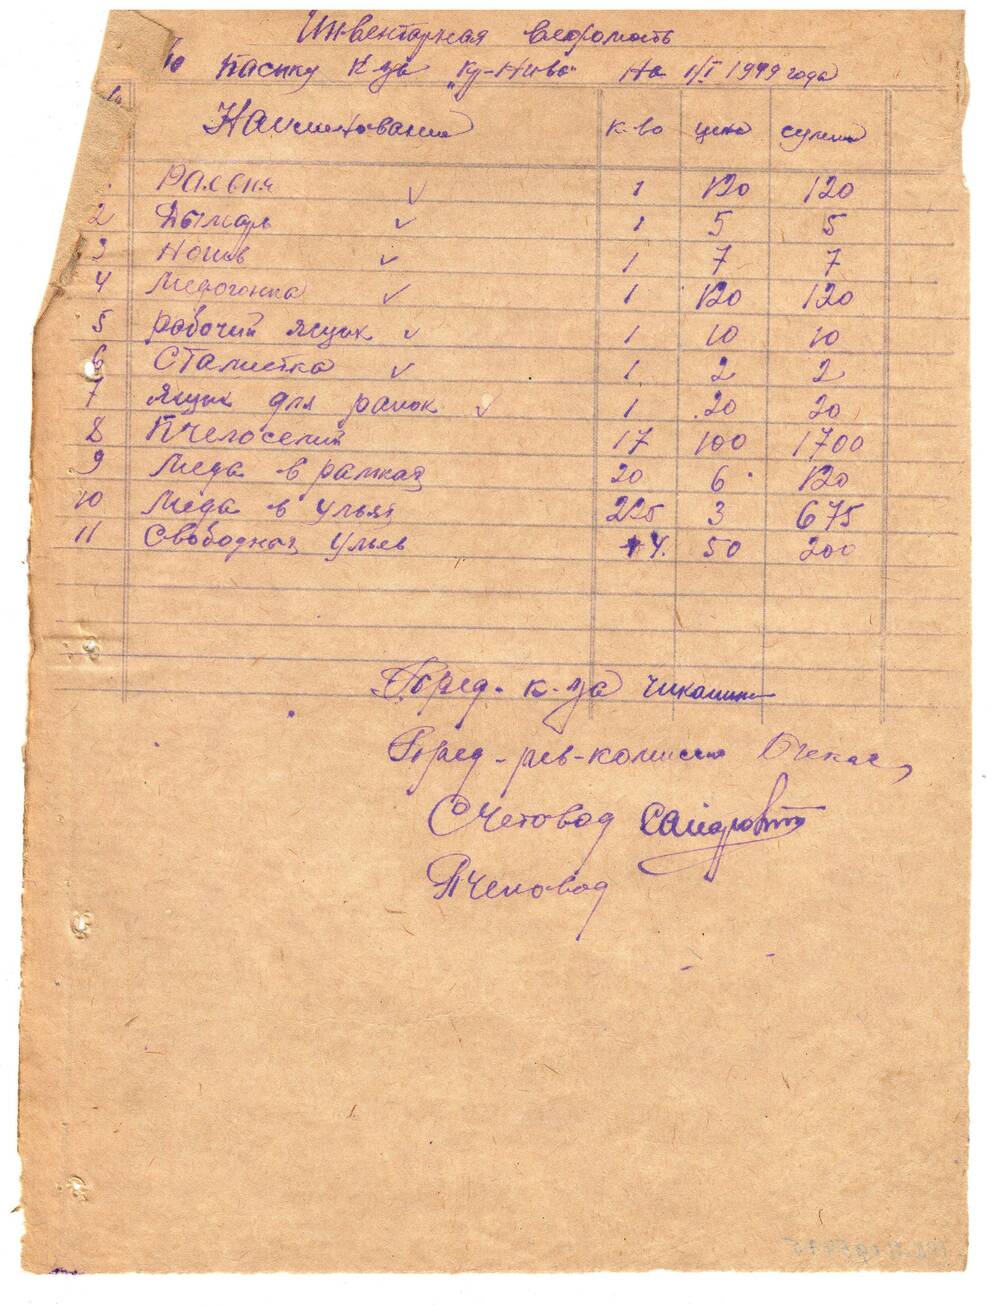 Инвентарная ведомость
по Пасику К-за "Кр-Нива" На 1/I 1949 года
Наименование к-во цена сумма
Раевня 1 120 120
2 Дымарь 1 5 5
3 Ножов 1 7 7
4 Медогонка 1 120 120
5 рабочий ящик 1 10 10
6 Сталистка 1 2 2
7 Ящик для рамок 1 20 20
8 Пчелосемий 17 100 1700
9 Меда в рамках 20 6 120
10 Меда в ульях 225 3 675
11 Свободных ульев 4 50 200
Пред. к-за
Пред-рев-комиссии
Счетовод
Пчеловод